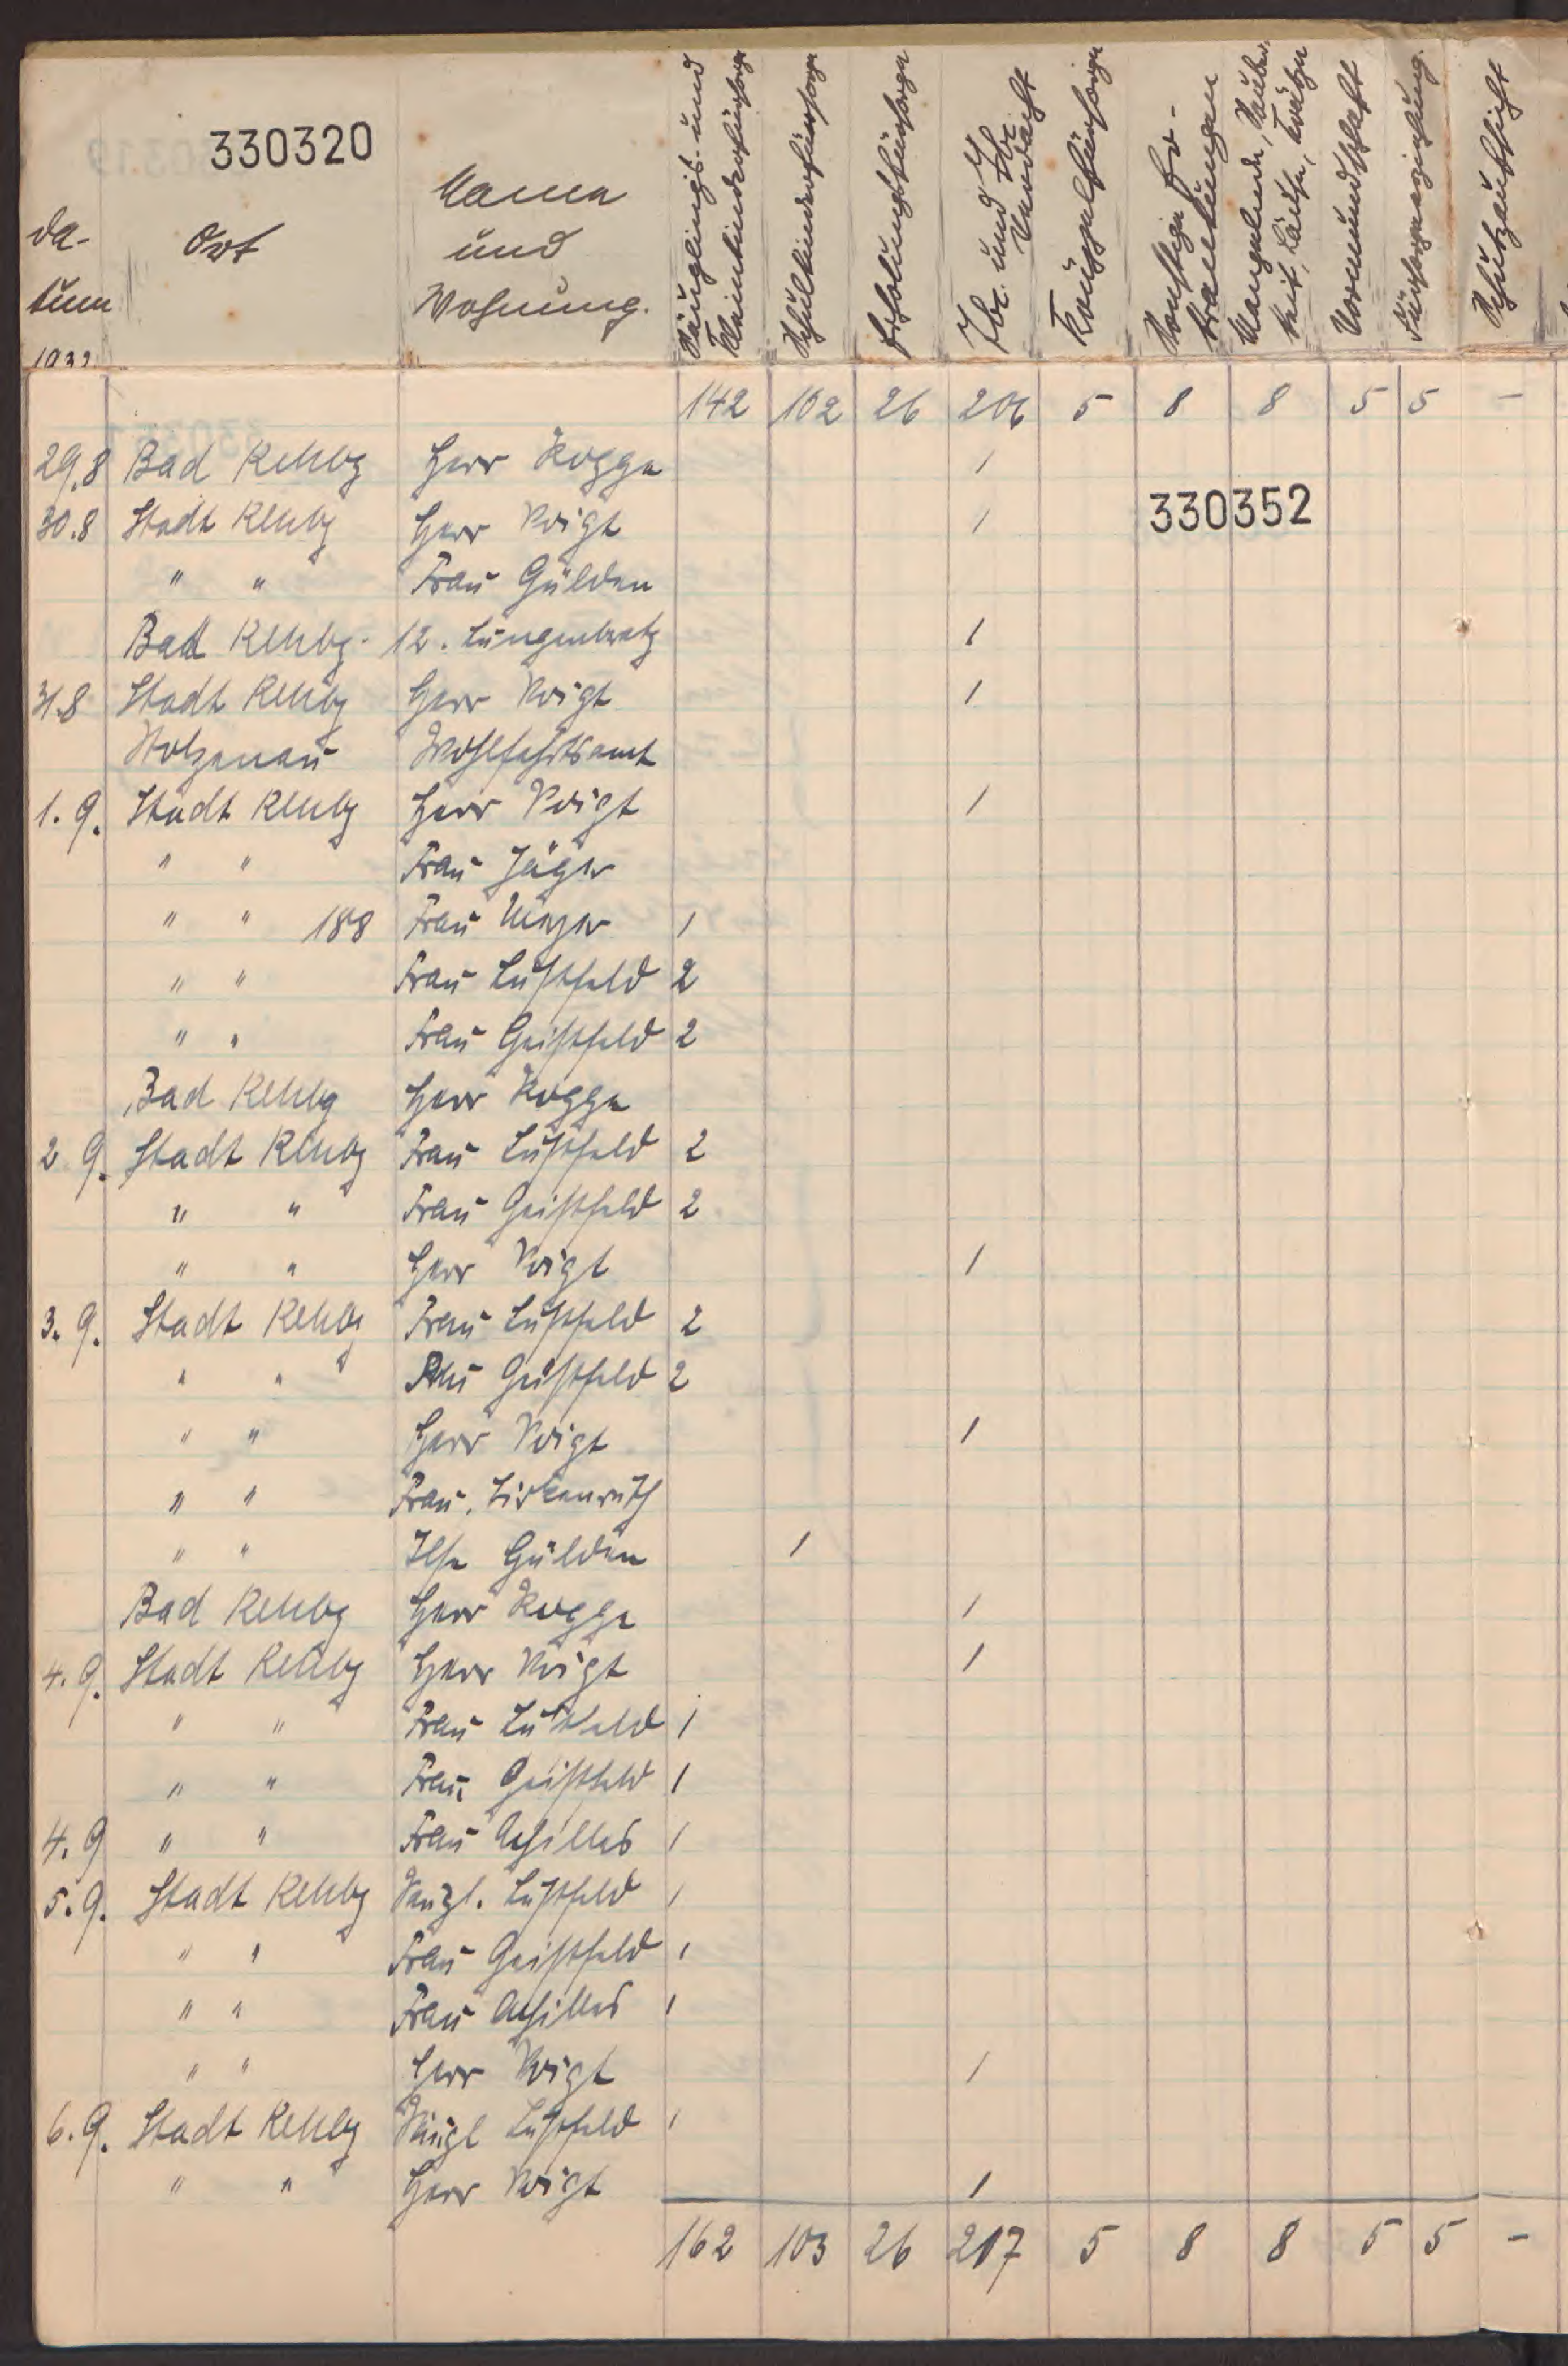 330320
Da-
tum
1932
Ort
Name
und
Wohnung.
Säuglings- und
Kleinkinderfürsorge
Schulkinderfürsorge
Erholungsfürsorge
Tbc. und Tbc.
Verdacht
Krüppelfürsorge
Sonstige Er-
krankungen
Mangelnde Sauber-
keit, Läuse, Krätze
Vormundschaft
Fürsorgeerziehung.
Schutzaufsicht
142 102 26 206 5 8 8 5 5 -
29.8 Bad Rehbg Herr Rogge 1
330352
30.8 Stadt Rehbg Herr Voigt 1
" " Frau Gülden
Bad Rehbg. 12. Lungenkratz 1
31.8 Stadt Rehbg Herr Voigt 1
Stolzenau Wohlfahrtsamt
1. 9. Stadt Rehbg Herr Voigt 1
" " Frau Jäger
" " 188 Frau Meyer 1
" " Frau Lustfeld 2
" " Frau Geistfeld 2
Bad Rehbg Herr Rogge
2 9. Stadt Rehbg Frau Lustfeld 2
" " Frau Geistfeld 2
" " Herr Voigt 1
3. 9. Stadt Rehbg Frau Lustfeld 2
" " Frau Geistfeld 2
" " Herr Voigt 1
" " Frau
" " Ilse Gülden 1
Bad Rehbg Herr Rogge 1
4. 9. Stadt Rehbg Herr Voigt 1
" " Frau Lustfeld 1
" " Frau Geistfeld 1
4. 9 " " Frau Achilles 1
5. 9. Stadt Rehbg Lustfeld 1
" " Frau Geistfeld 1
" " Frau Achilles 1
" " Herr Voigt 1
6. 9. Stadt Rehbg Lustfeld 1
" " Herr Voigt 1
162 103 26 217 5 8 8 5 5 -